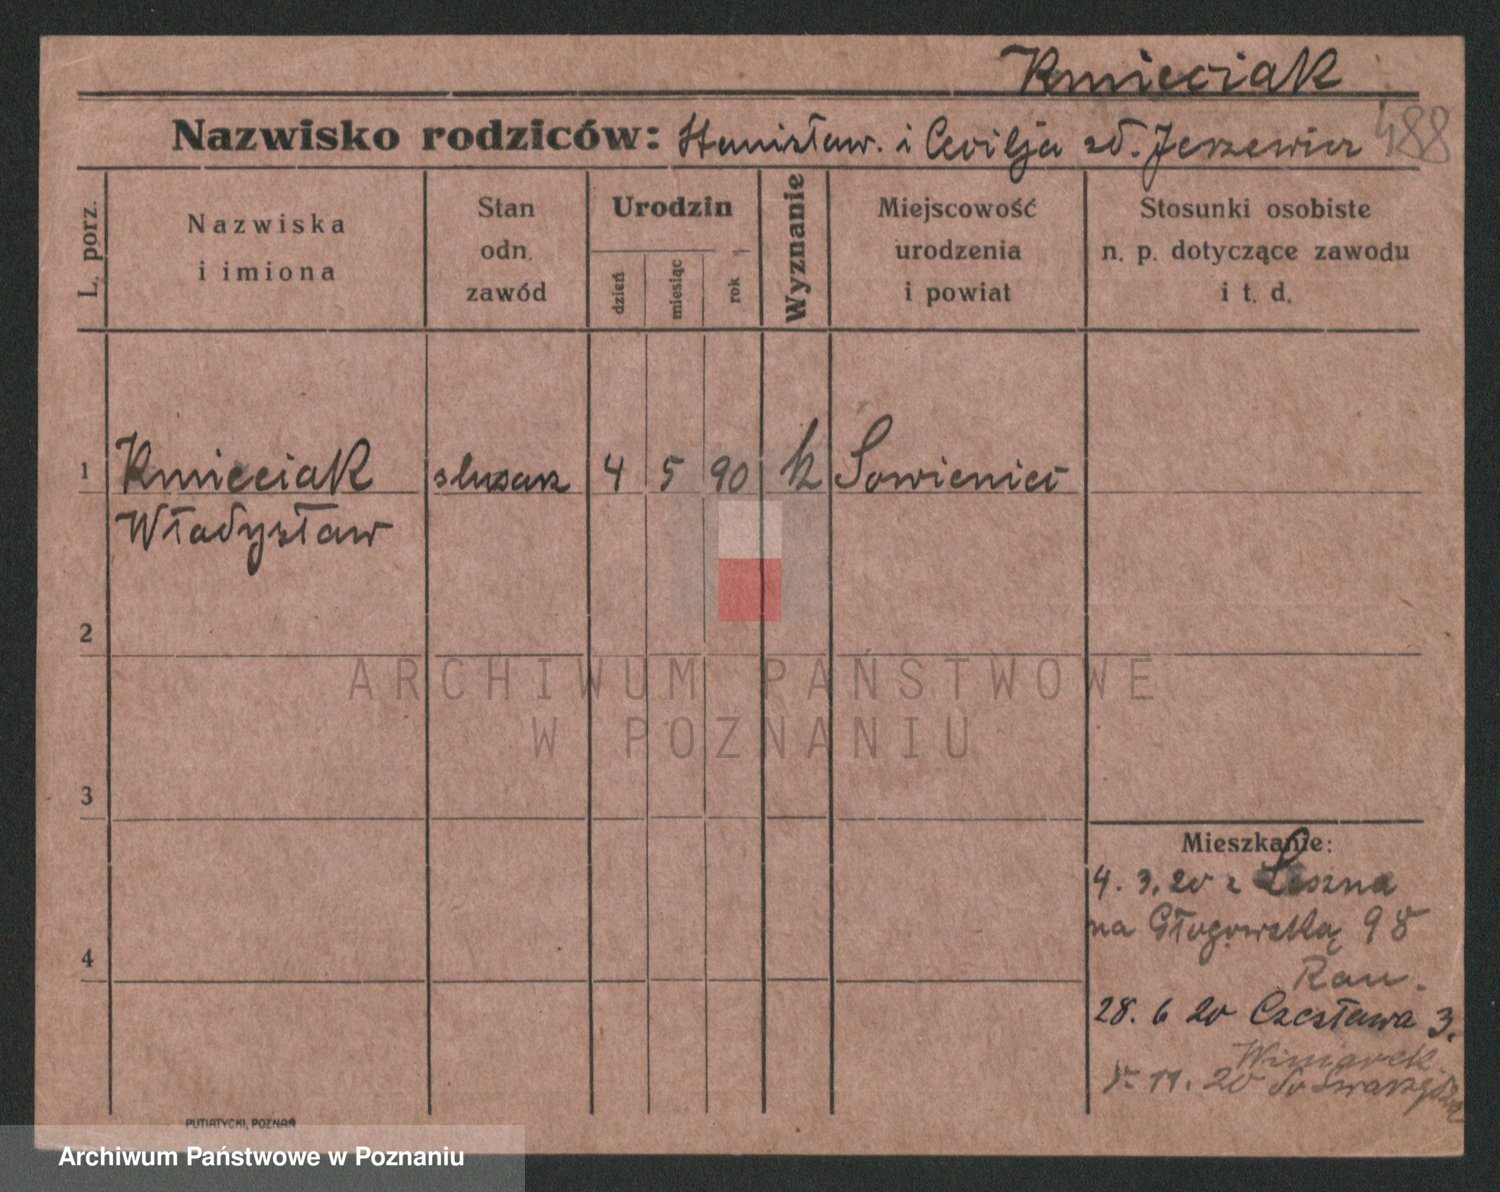 Kmieciak
Nazwisko rodziców: Stanisław. i Cecilja zd. Jerzewicz 488
L. porz.
Nazwiska
i imiona
Stan
odn.
zawód
Urodzin
dzień
miesiąc
rok
Wyznanie
Miejscowość
urodzenia
i powiat
Stosunki osobiste
n. p. dotyczące zawodu
i t. d.
1 Kmieciak ślusarz 4 5 90 k Sowieniec
Władysław
2
ARCHIWUM PAŃSTWOWE
W POZNANIU
3
Mieszkanie:
4. 3. 20 z Leszna
na Głogowską 98
4
Rau.
28. 6 20 Czesława 3.
Winiarek.
11. 20 do Swarzędza
PUTIATYCKI, POZNAŃ
Archiwum Państwowe w Poznaniu